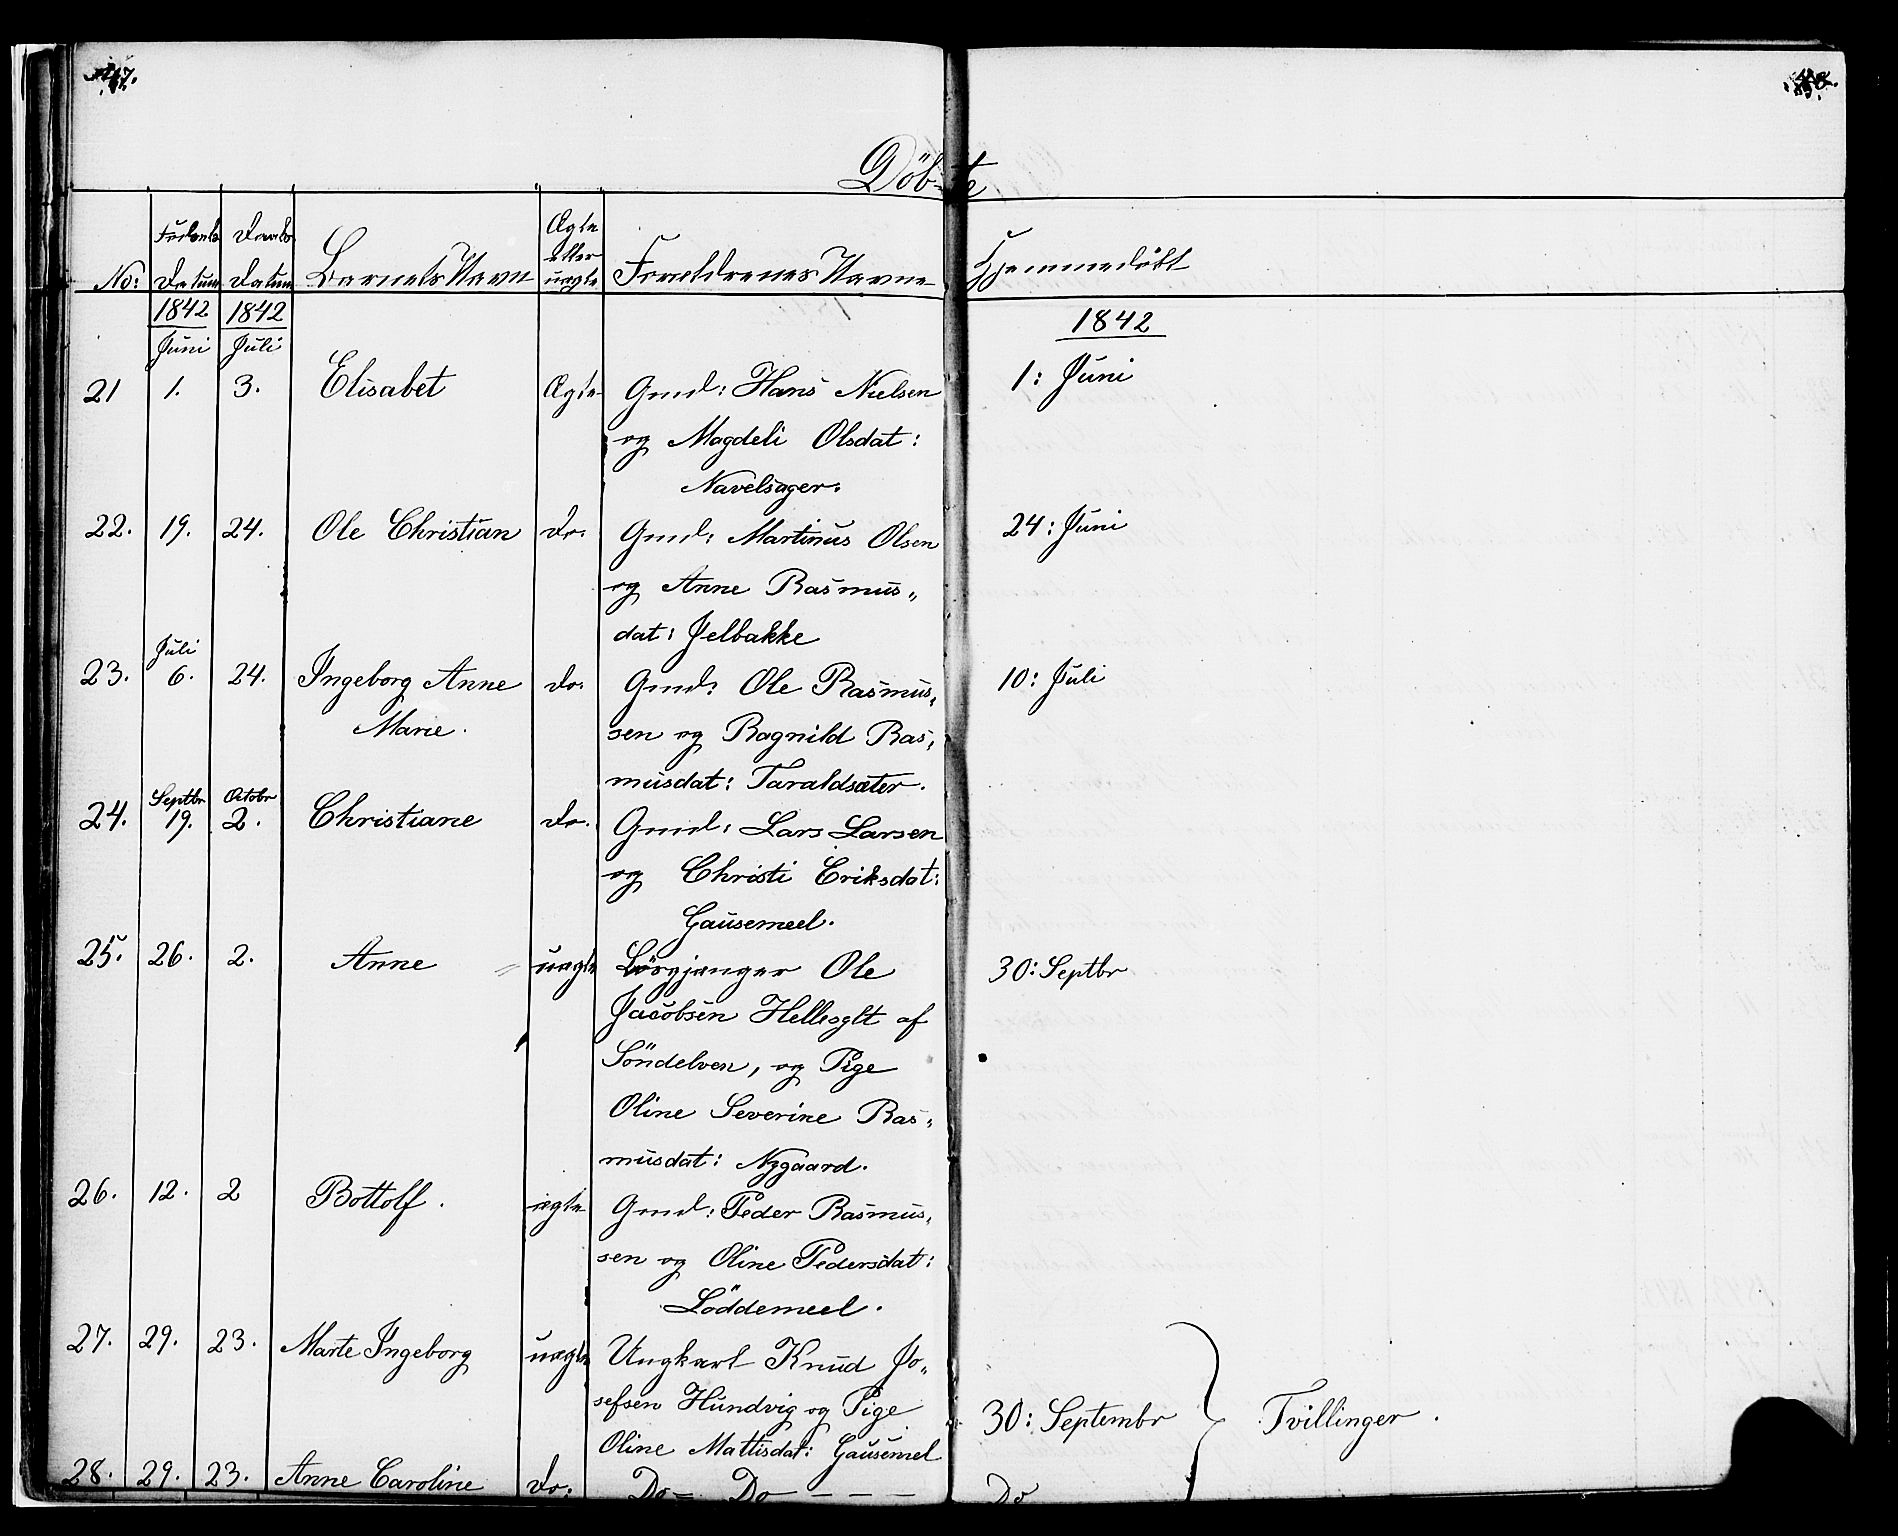 Döbte
No: Fødsels Datum Daabs Datum Barnets Navn Ægte eller uægte Forældrenes Navne Hjemmedöbt
1842 1842 1842
Juni Juli
21 1. 3. Elisabet Ægte Gmd: Hans Nielsen 1: Juni
og Magdeli Olsdat:
Navelsager.
22. 19. 24. Ole Christian do. Gmd: Martinus Olsen 24: Juni
og Anne Rasmus„
dat: Jelbakke
Juli
23. 6. 24. Ingeborg Anne do. Gmd: Ole Rasmus„ 10: Juli
Marie. sen og Ragnild Ras„
musdat: Taraldsæter.
Septbr Octobr
24. 19. 2. Christiane do. Gmd: Lars Larsen
og Christi Eriksdat:
Gausemeel.
25. 26. 2. Anne uægte Ole 30: Septbr
Jacobsen Hellesylt af
Söndelven, og Pige
Oline Severine Ras„
musdat: Nygaard.
26. 12. 2 Bottolf. ægte Gmd: Peder Rasmus„
sen og Oline Pedersdat:
Löddemeel.
27. 29. 23. Marte Ingeborg uægte Ungkarl Knud Jo„
sefsen Hundvig og Pige 30: Septembr Tvillinger.
Oline Mattisdat: Gausemel
28. 29. 23. Anne Caroline do: Do – Do – – – Do